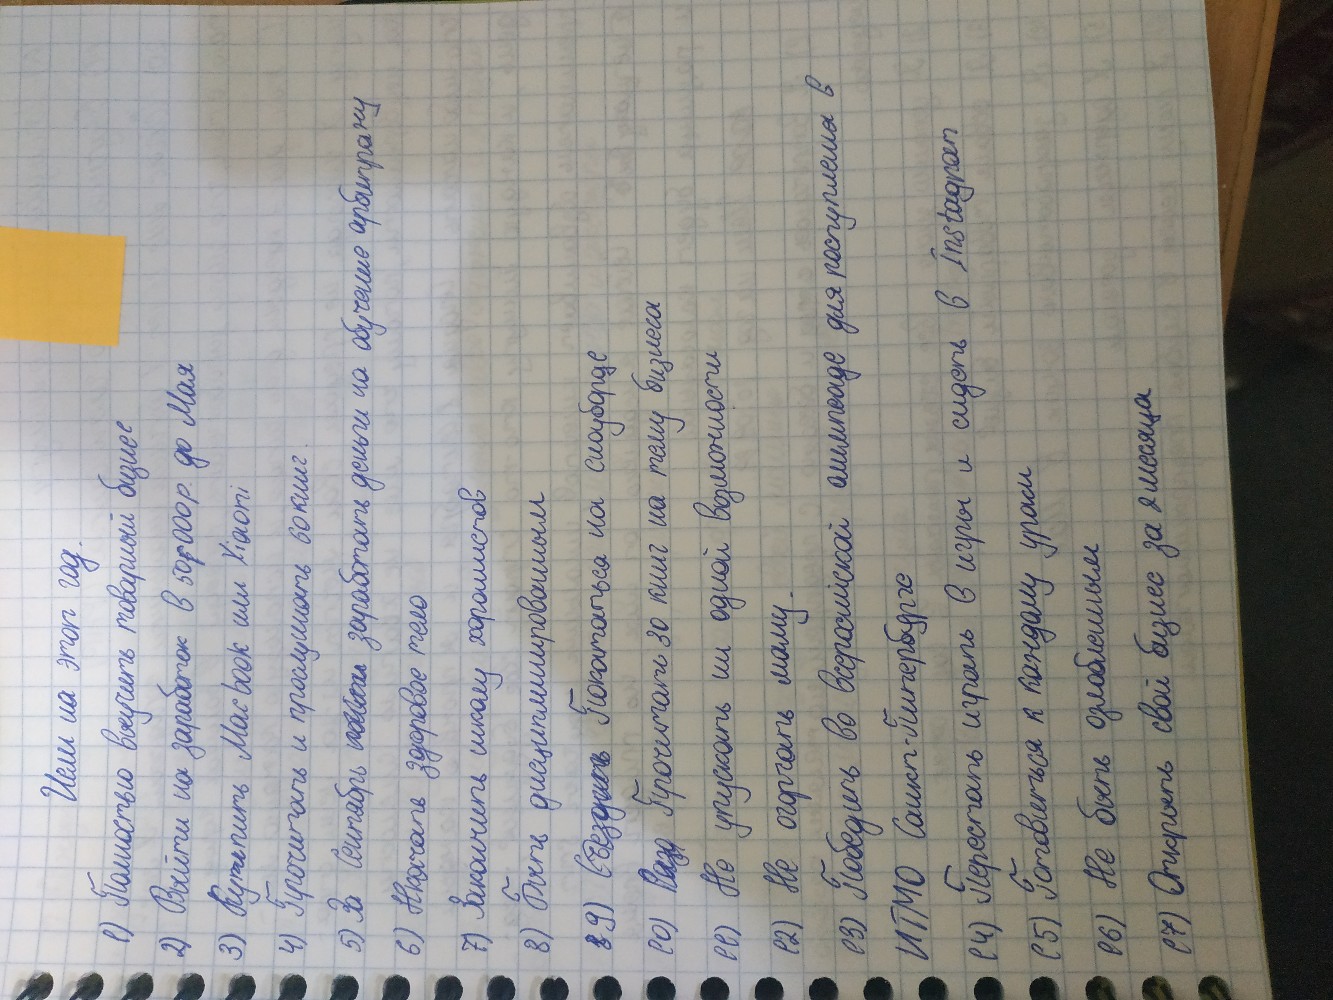 Цели на этот год.
1) Полностью выучить товарный бизнес
2) Выйти на заработок в 50 000 р. до Мая
3) Купить Macbook или Xiaomi
4) Прочитать и прослушать 60 книг.
5) За Сентябрь заработать деньги на обучение арбитражу
6) Нкачать здоровое тело
7) Закончить школу хорошистов
8) Быть дисциплинированным
9) Съездить Покататься на сноуборде
10) Прочитать 30 книг на тему бизнеса
11) Не упускать ни одной возможности
12) Не огорчать маму.
13) Победить во всеросийской олимпеаде для поступления в
ИТМО Санкт-Питербурге
14) Перестать играть в игры и сидеть в Instagram
15) Готовиться к каждому уроки
16) Не быть озлобленным
17) Открыть свой бизнес за 2 месяца